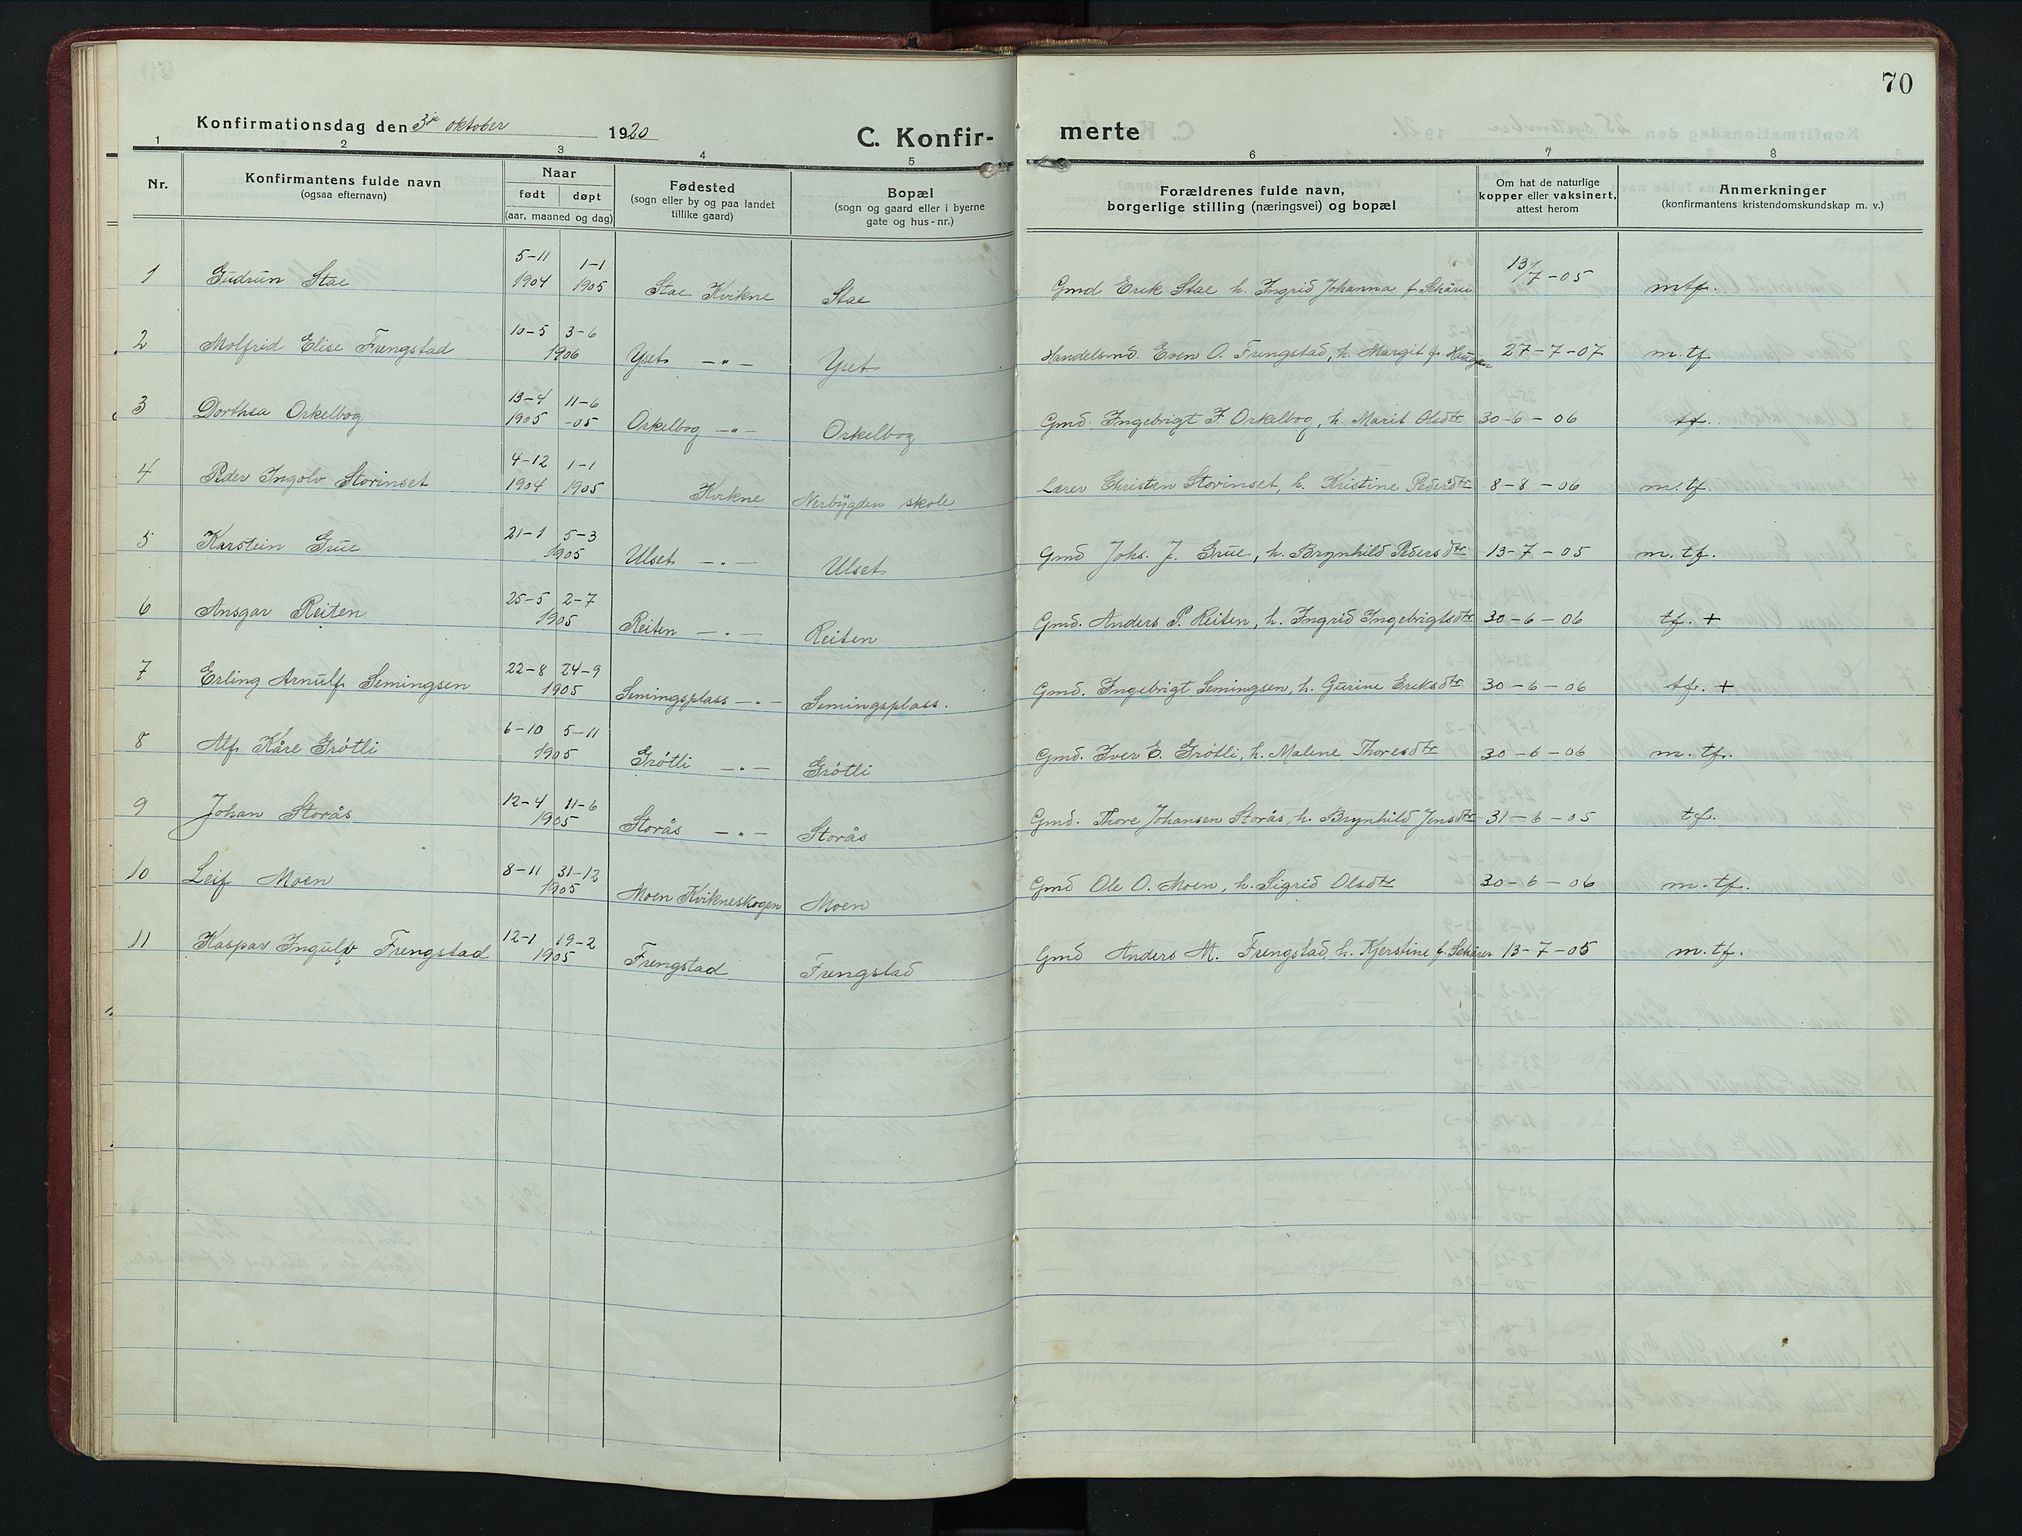 70
Konfirmationsdag den 3die oktober 1920
C. Konfir-
merte
1 2 3 4 5 6 7 8
Nr.
Konfirmantens fulde navn
(ogsaa efternavn)
Naar
født døpt
(aar, maaned og dag)
Fødested
(sogn eller by og paa landet
tillike gaard)
Bopæl
(sogn og gaard eller i byerne
gate og hus-nr.)
Forældrenes fulde navn,
borgerlige stilling (næringsvei) og bopæl
Om hat de naturlige
kopper eller vaksinert,
attest herom
Anmerkninger
(konfirmantens kristendomskundskap m. v.)
1 Gudrun Stae 5-11 1904 1-1 1905 Stae Kvikne Stae Gmd Erik Stae h. Ingrid Johanna f. Schärer 13/7-05 mtf.
2 Molfrid Elise Frengstad 10-5 3-6 1906 Yset -"- Yset Handelsmd. Even O. Frengstad, h. Margit f. Haugen 27-7-07 m.tf
3 Dorthea Orkelbog 13-4 1905 11-6 -05 Orkelbog -"- Orkelbog Gmd. Ingebrigt F. Orkelbog, h. Marit Olsdtr 30-6-06 tf.
4 Peder Ingolv Storinset 4-12 1904 1-1 1905 Kvikne Nerbÿgden skole Lærer Christen Storinset, h. Kristine Pedersdtr 8-8-06 m.tf.
5 Karstein Grue 21-1 5-3 1905 Ulset -"- Ulset Gmd Johs. J. Grue, h. Brynhild Pedersdtr 13-7-05 m.tf.
6 Ansgar Reiten 25-5 2-7 1905 Reiten -"- Reiten Gmd. Anders P. Reiten, h. Ingrid Ingebrigtsdtr 30-6-06 tf. +
7 Erling Arnulf Semingsen 22-8 24-9 1905 Semingsplass -"- Semingsplass. Gmd. Ingebrigt Semingsen, h. Gurine Eriksdtr 30-6-06 tf. +
8 Alf Kåre Grøtli 6-10 5-11 1905 Grøtli -"- Grøtli Gmd. Iver E. Grøtli, h. Malene Thoresdtr 30-6-06 m.tf.
9 Johan Storås 12-4 11-6 1905 Storås -"- Storås Gmd. Thore Johansen Storås, h. Brynhild Jensdtr 31-6-05 tf.
10 Leif Moen 8-11 31-12 1905 Moen Kvikneskogen Moen Gmd Ole O. Moen, h. Sigrid Olsdtr 30-6-06 m.tf.
11 Kaspar Ingulv Frengstad 12-1 19-2 1905 Frengstad Frengstad Gmd Anders M. Frengstad, h. Kjerstine f. Schärer 13-7-05 m.tf.